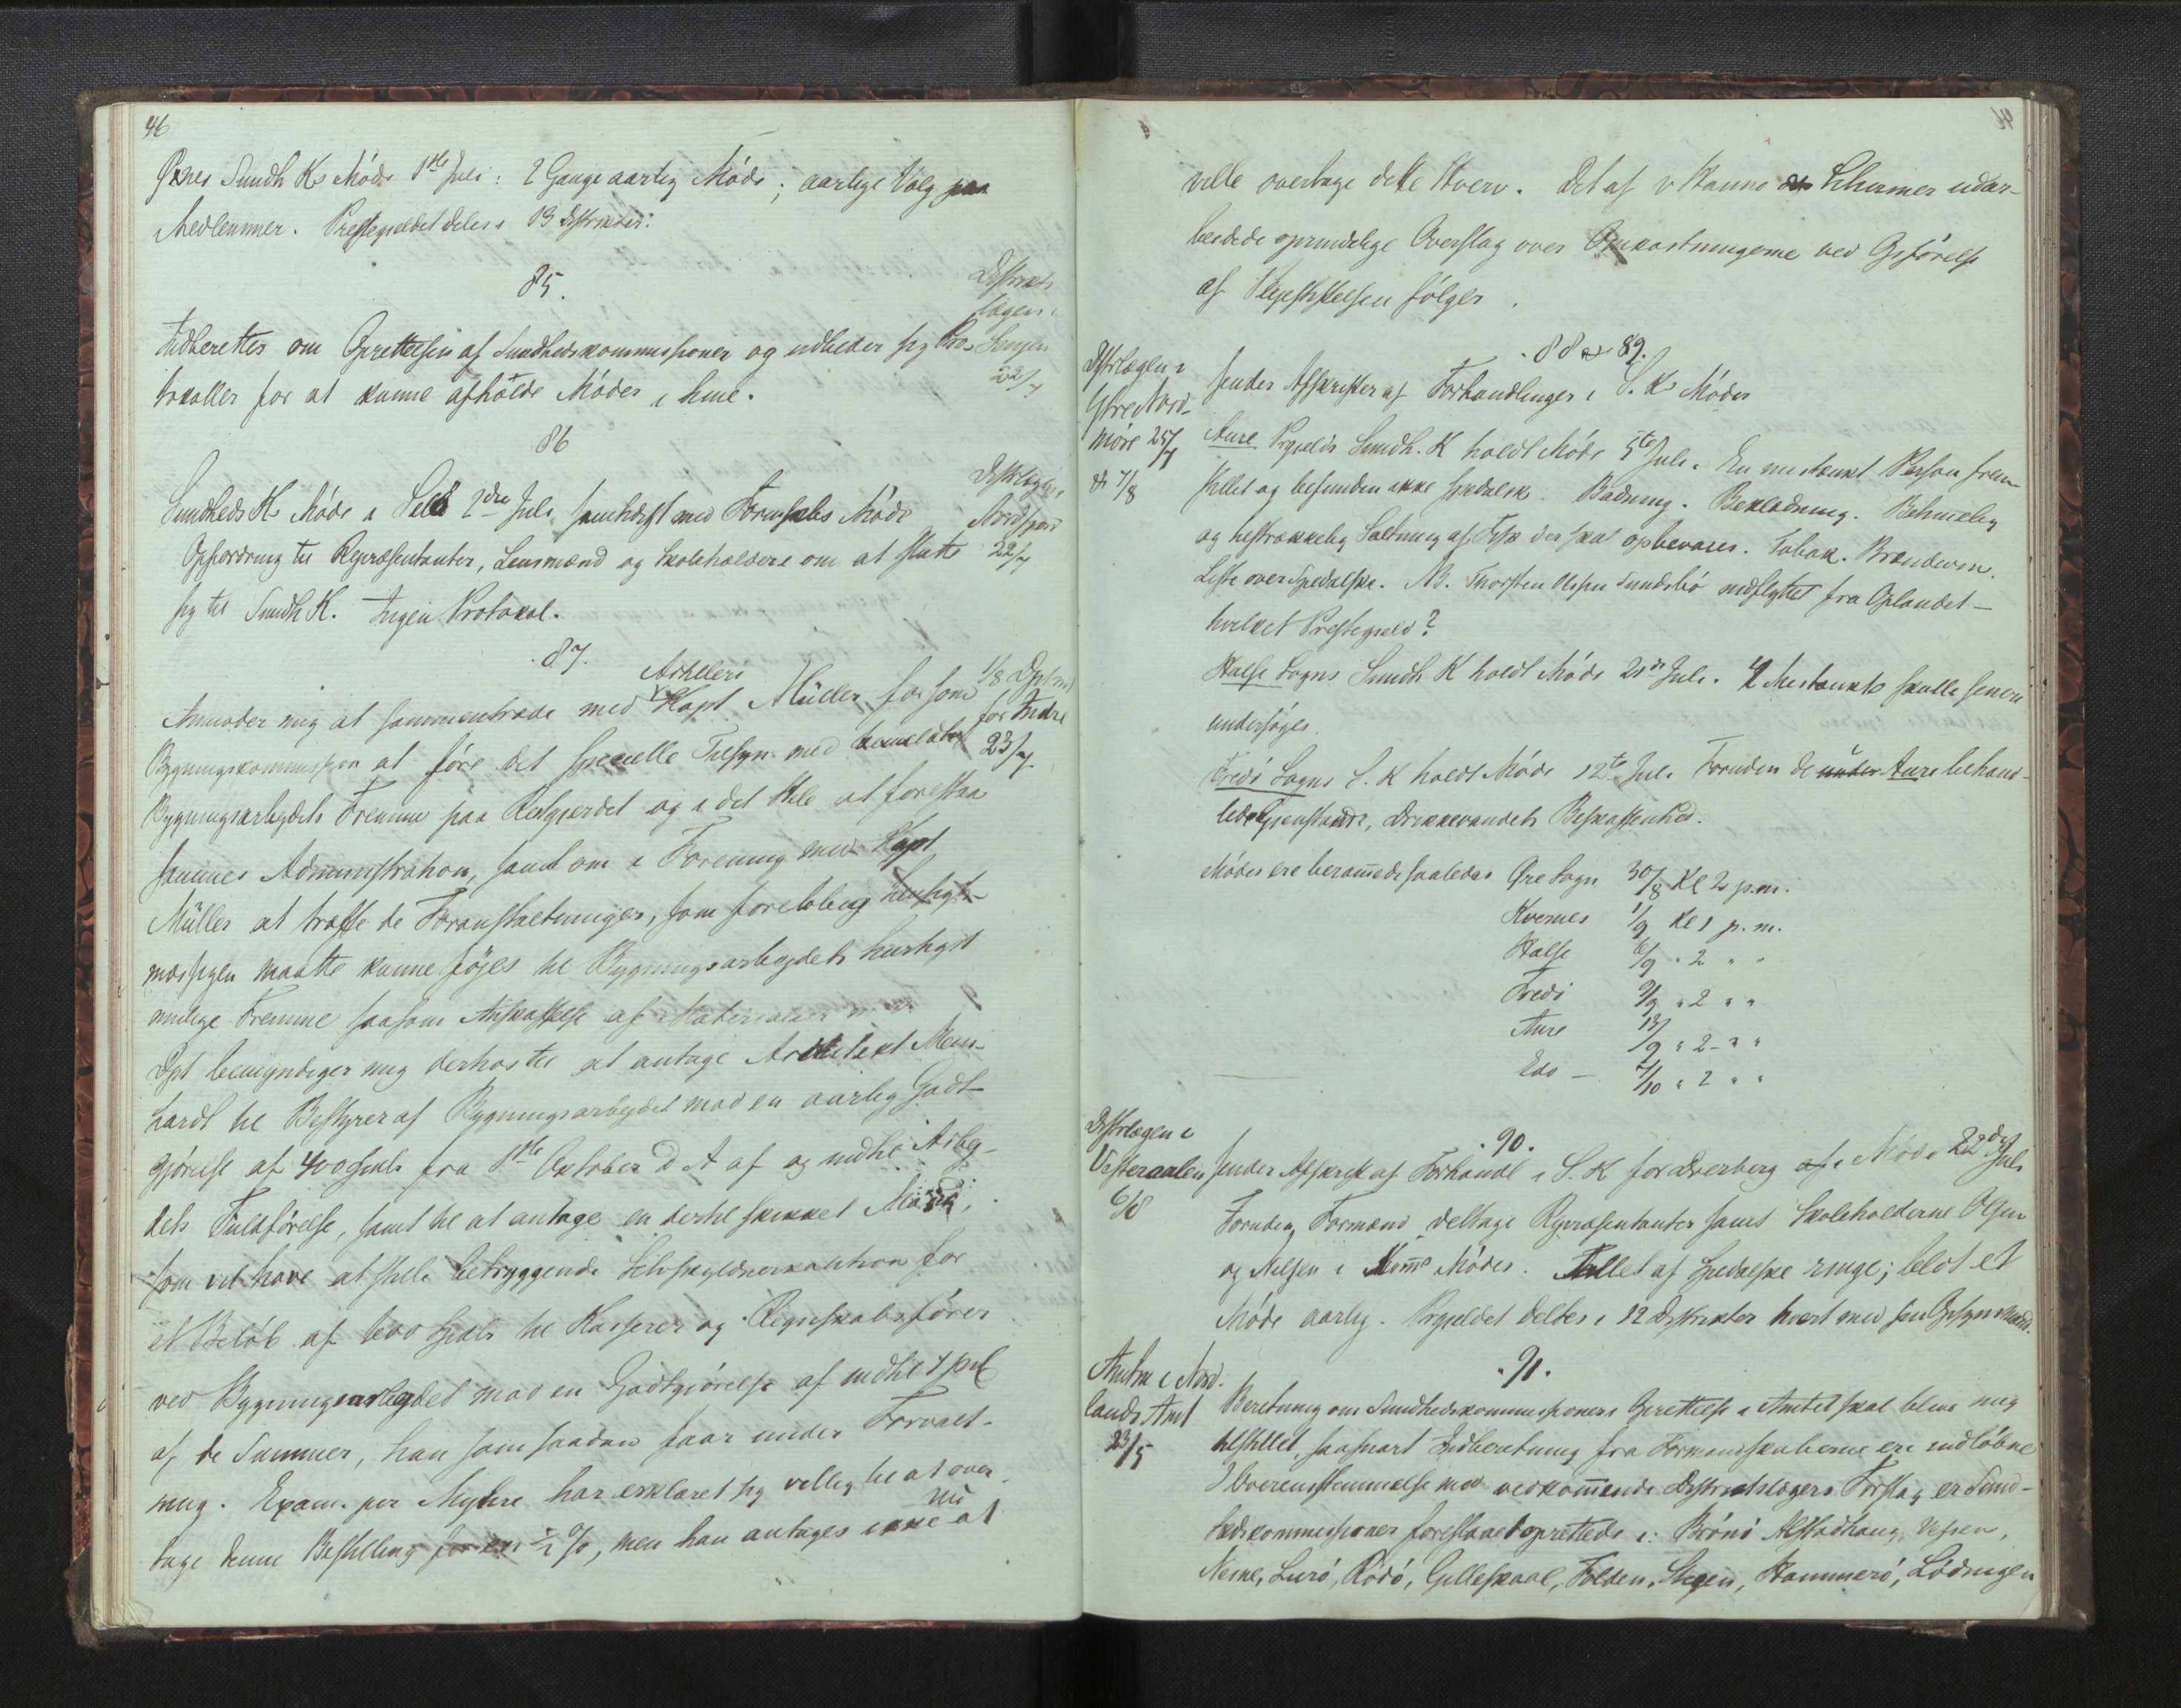 46
Øxnes Sundh Ks Møde 1ste Juli: 2 Gange aarlig Møde; aarlige Valg paa
Medlemmer. Præstegjeldet deles i 13 Distrikter.
85.
Distrikts
lægen i
Senjen
22/7
Indberetter om Oprettelsen af Sundhedskommissioner og udbeder sig Pro-
tokoller for at kunne afholde Møder i hine.
86
Distrlægen i
Nordfjord
22/7
Sundheds K Møde i Selø 2den Juli samtidigt med Formskabs Møde
Opfordring til Repræsentanter, Lensmænd og Skoleholdere om at slutte
sig til Sundh K. Ingen Protokol.
87.
1/8 Dptmt
for Indre
23/7
Artilleri
Anmoder mig at sammentræde med Kapt Müller, for som
Bygningskommission at føre det specielle Tilsyn med
Bygningsarbejdets Fremme paa Reknjærdet og i det Hele at forestaa
sammes Administration, samt om i Forening med Kapt
Müller at træffe de Foranstaltninger, som foreløbig hensigts-
mæssigen maatte kunne føjes til Bygningsarbejdets hurtigst
mulige Fremme saasom Anskaffelse af Materialier
Dpt bemyndiger mig derhos til at antage Arkitekt Mein-
hardt til Bestyrer af Bygningsarbejdet mod en aarlig Godt-
gjørelse af 400 Spdlr fra 1ste Oktober D A af og indtil Arbej-
dets Fuldførelse, samt til at antage en dertil skikket Mand,
som vil have at stille betryggende Selvskyldnerkaution for
et Beløb af 600 Spdlr til Kasserer og Regnskabsfører
ved Bygningsarbejdet mod en Godtgjørelse af indtil 1 pCt
af de Summer, han som saadan faar under Forvalt-
ning. Exam. jur Myhre har erklæret sig villig til at over-
tage denne Bestilling for en 1/2 %, men han antages ikke nu at
ville overtage dette Hverv. Det af v Hanno & Schirmer udar-
beidede oprindelige Overslag over Omkostningerne ved Opførelse
af Plejestiftelsen følger.
88 & 89.
Distrlægen i
Ytre Nord-
møre 25/7
& 7/8
sender Afskrifter af Forhandlinger i S. Ks Møder
Aure Prgjelds Sundh. K holdt Møde 5te Juli. En mistænkt Person frem-
stillet og befunden ikke spedalsk. Badning. Beklædning. Behandling
og tilstrækkelig Saltning af Fisk der skal opbevares. Tobak. Brændevin.
Liste over Spedalske. NB. Thorsten Olsen Sundsbø indflyttet fra Oplandet –
hvilket Præstegjeld?
Halse Sogns Sundh K holdt Møde 21de Juli. 2 Mistænkte skulle senere
undersøges.
Fredø Sogns S. K holdt Møde 12te Juli Foruden de under Aure behand-
lede Gjenstande, Drikkevandets Beskaffenhed.
Møder ere berammede saaledes Øre Sogn 30/8 Kl 2 p.m.
Kvernes 1/9 Kl 1 p.m.
Halse 6/9 " 2 " "
Fredø 9/9 " 2 " "
Aure 13/9 " 2 " "
Edø – 4/10 " 2 " "
90.
Distrlægen i
Vesteraalen
6/8
sender Afskrift af Forhandl i S. K for Dverberg af i Møde 22de Juli
Foruden Formænd deltage Repræsentanter samt Skoleholderne Olsen
og Nilsen i Komms Møder. Tallet af Spedalske ringe; blot et
Møde aarlig. Prgjeldet deltes i 12 Distrikter hvert med sin Opsynsmand.
91.
Amtm i Nord-
lands Amt
23/5
Beretning om Sundhedskommissioners Oprettelse i Amtet skal blive mig
tilstillet, saasnart Indberetning fra Formandskaberne ere indløbne
I Overensstemmelse med vedkommende Distriktslægers Forslag er Sund-
hedskommissioner foreslaaet oprettede i: Brønø Alstadhaug, Vefsen,
Nesne, Lurø, Rødø, Gilleskaal, Folden, Stegen, Hammerø, Lødingen